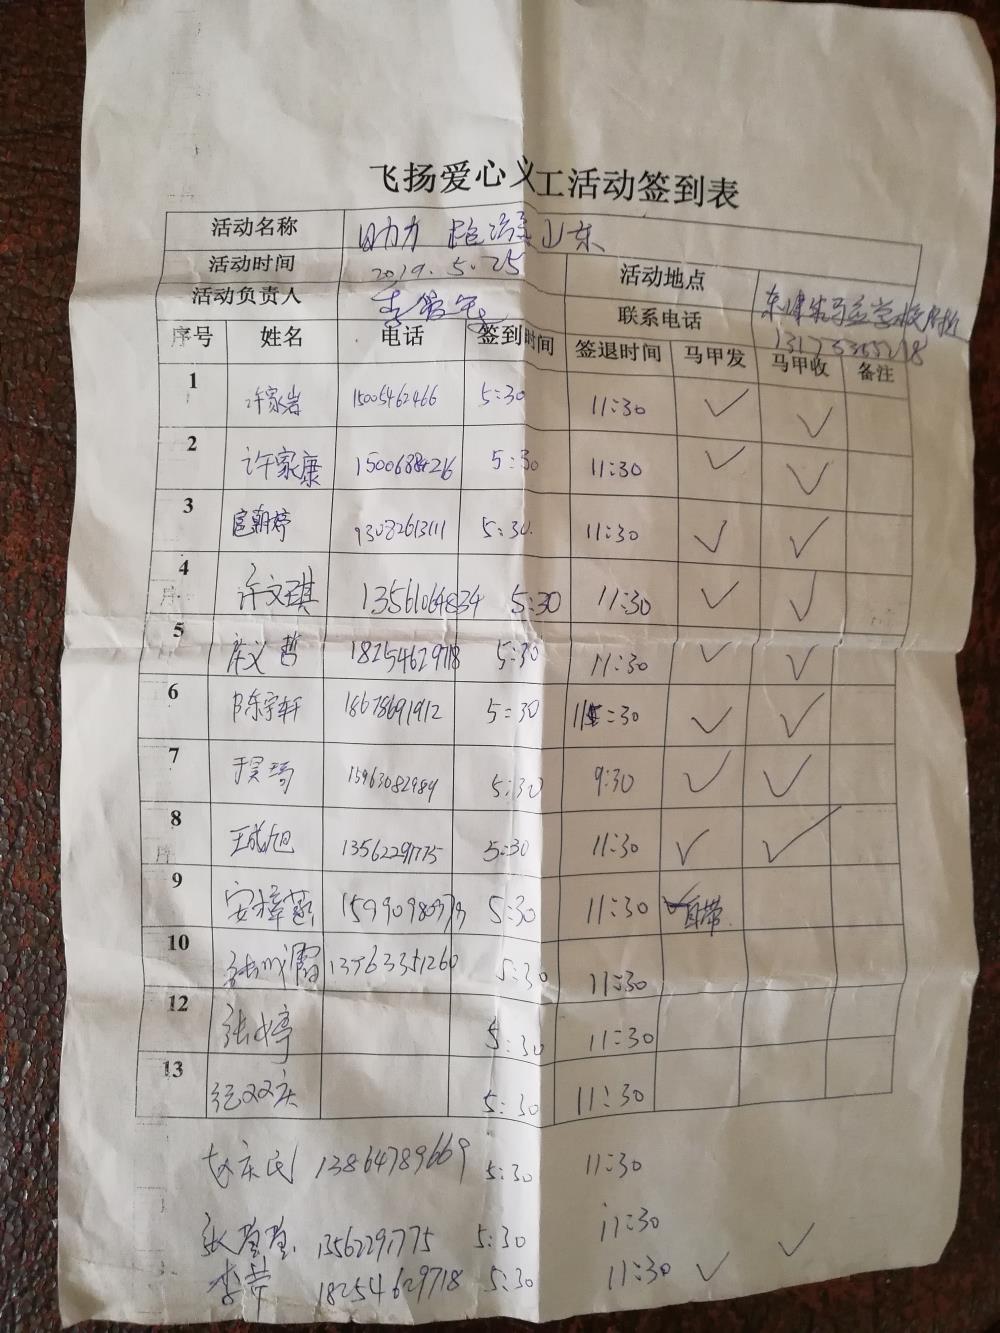 飞扬爱心义工活动签到表
活动名称 助力 跑游山东
活动时间 2019.5.25 活动地点
活动负责人 联系电话
序号 姓名 电话 签到时间 签退时间 马甲发 马甲收 备注
1 许家岩 15005462466 5:30 11:30 ✓ ✓
2 许家康 5:30 11:30 ✓ ✓
3 扈朝婷 93082613111 5:30 11:30 ✓ ✓
4 许文琪 13561064834 5:30 11:30 ✓ ✓
5 18254629718 5:30 11:30 ✓ ✓
6 陈宇轩 18678691912 5:30 11:30 ✓ ✓
7 于昊琦 15963082989 5:30 9:30 ✓ ✓
8 王成旭 13562291775 5:30 11:30 ✓ ✓
9 5:30 11:30 自带
10 13763351260 5:30 11:30
12 张婷 5:30 11:30
13 纪双庆 5:30 11:30
赵庆民 13864789669 5:30 11:30
张莹莹 13562291775 5:30 11:30 ✓
李苹 18254629718 5:30 11:30 ✓